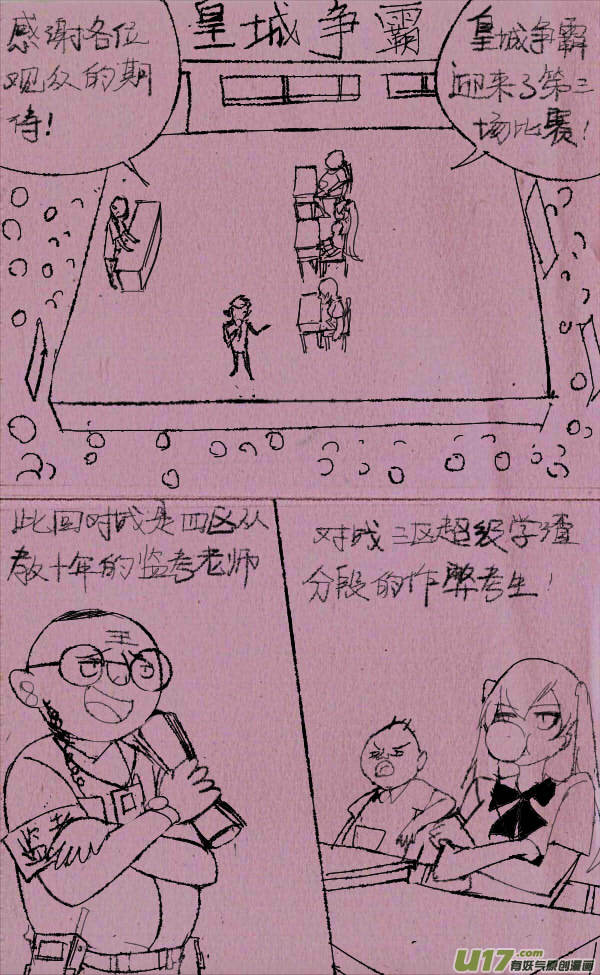 皇城争霸
感谢各位
观众的期
待！
皇城争霸
迎来了第三
场比赛！
此回对战是四区从
教十年的监考老师
对战三区超级学渣
分段的作弊考生！
王
监考
U17.com
有妖气原创漫画